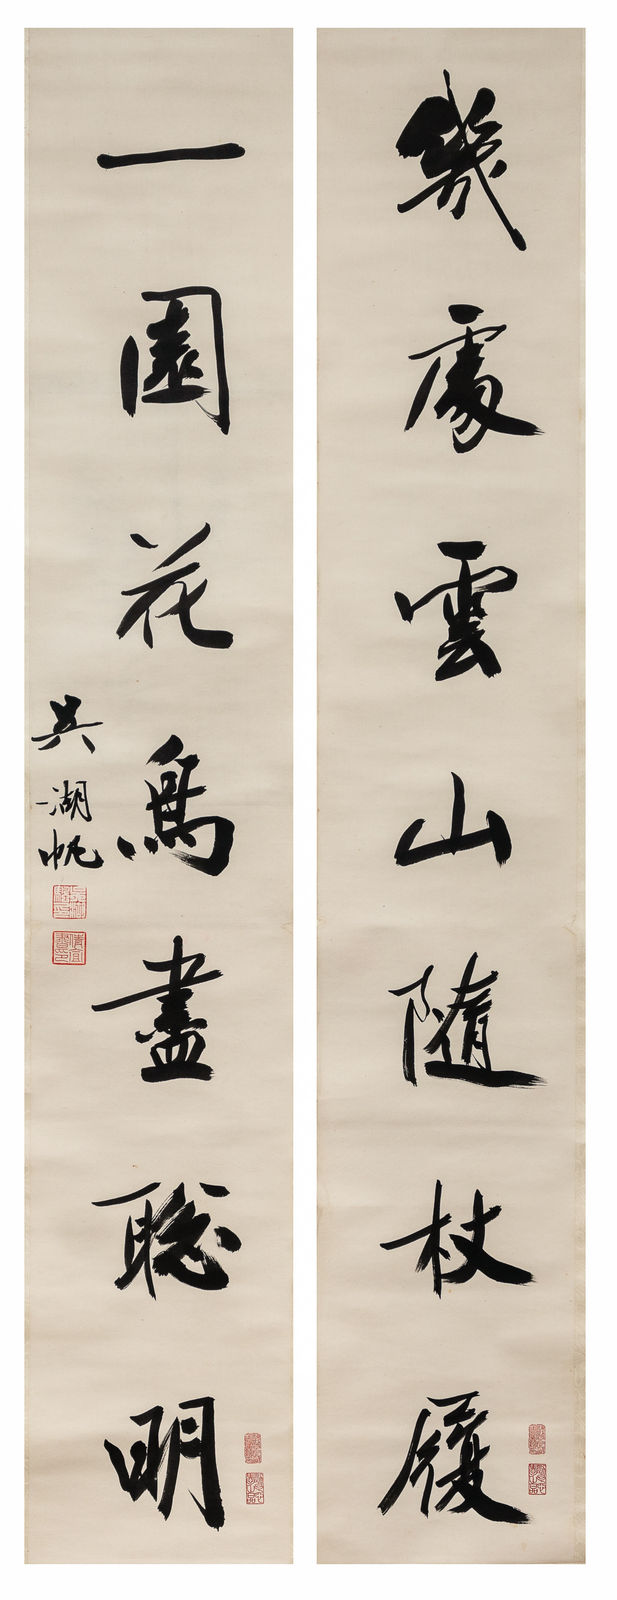 幾處雲山隨杖履
一園花鳥盡聰明
吳湖帆